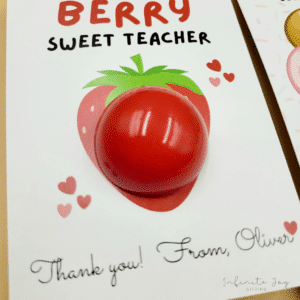 BERRY
SWEET TEACHER
Thank you! From, Oliver
Infinite Joy